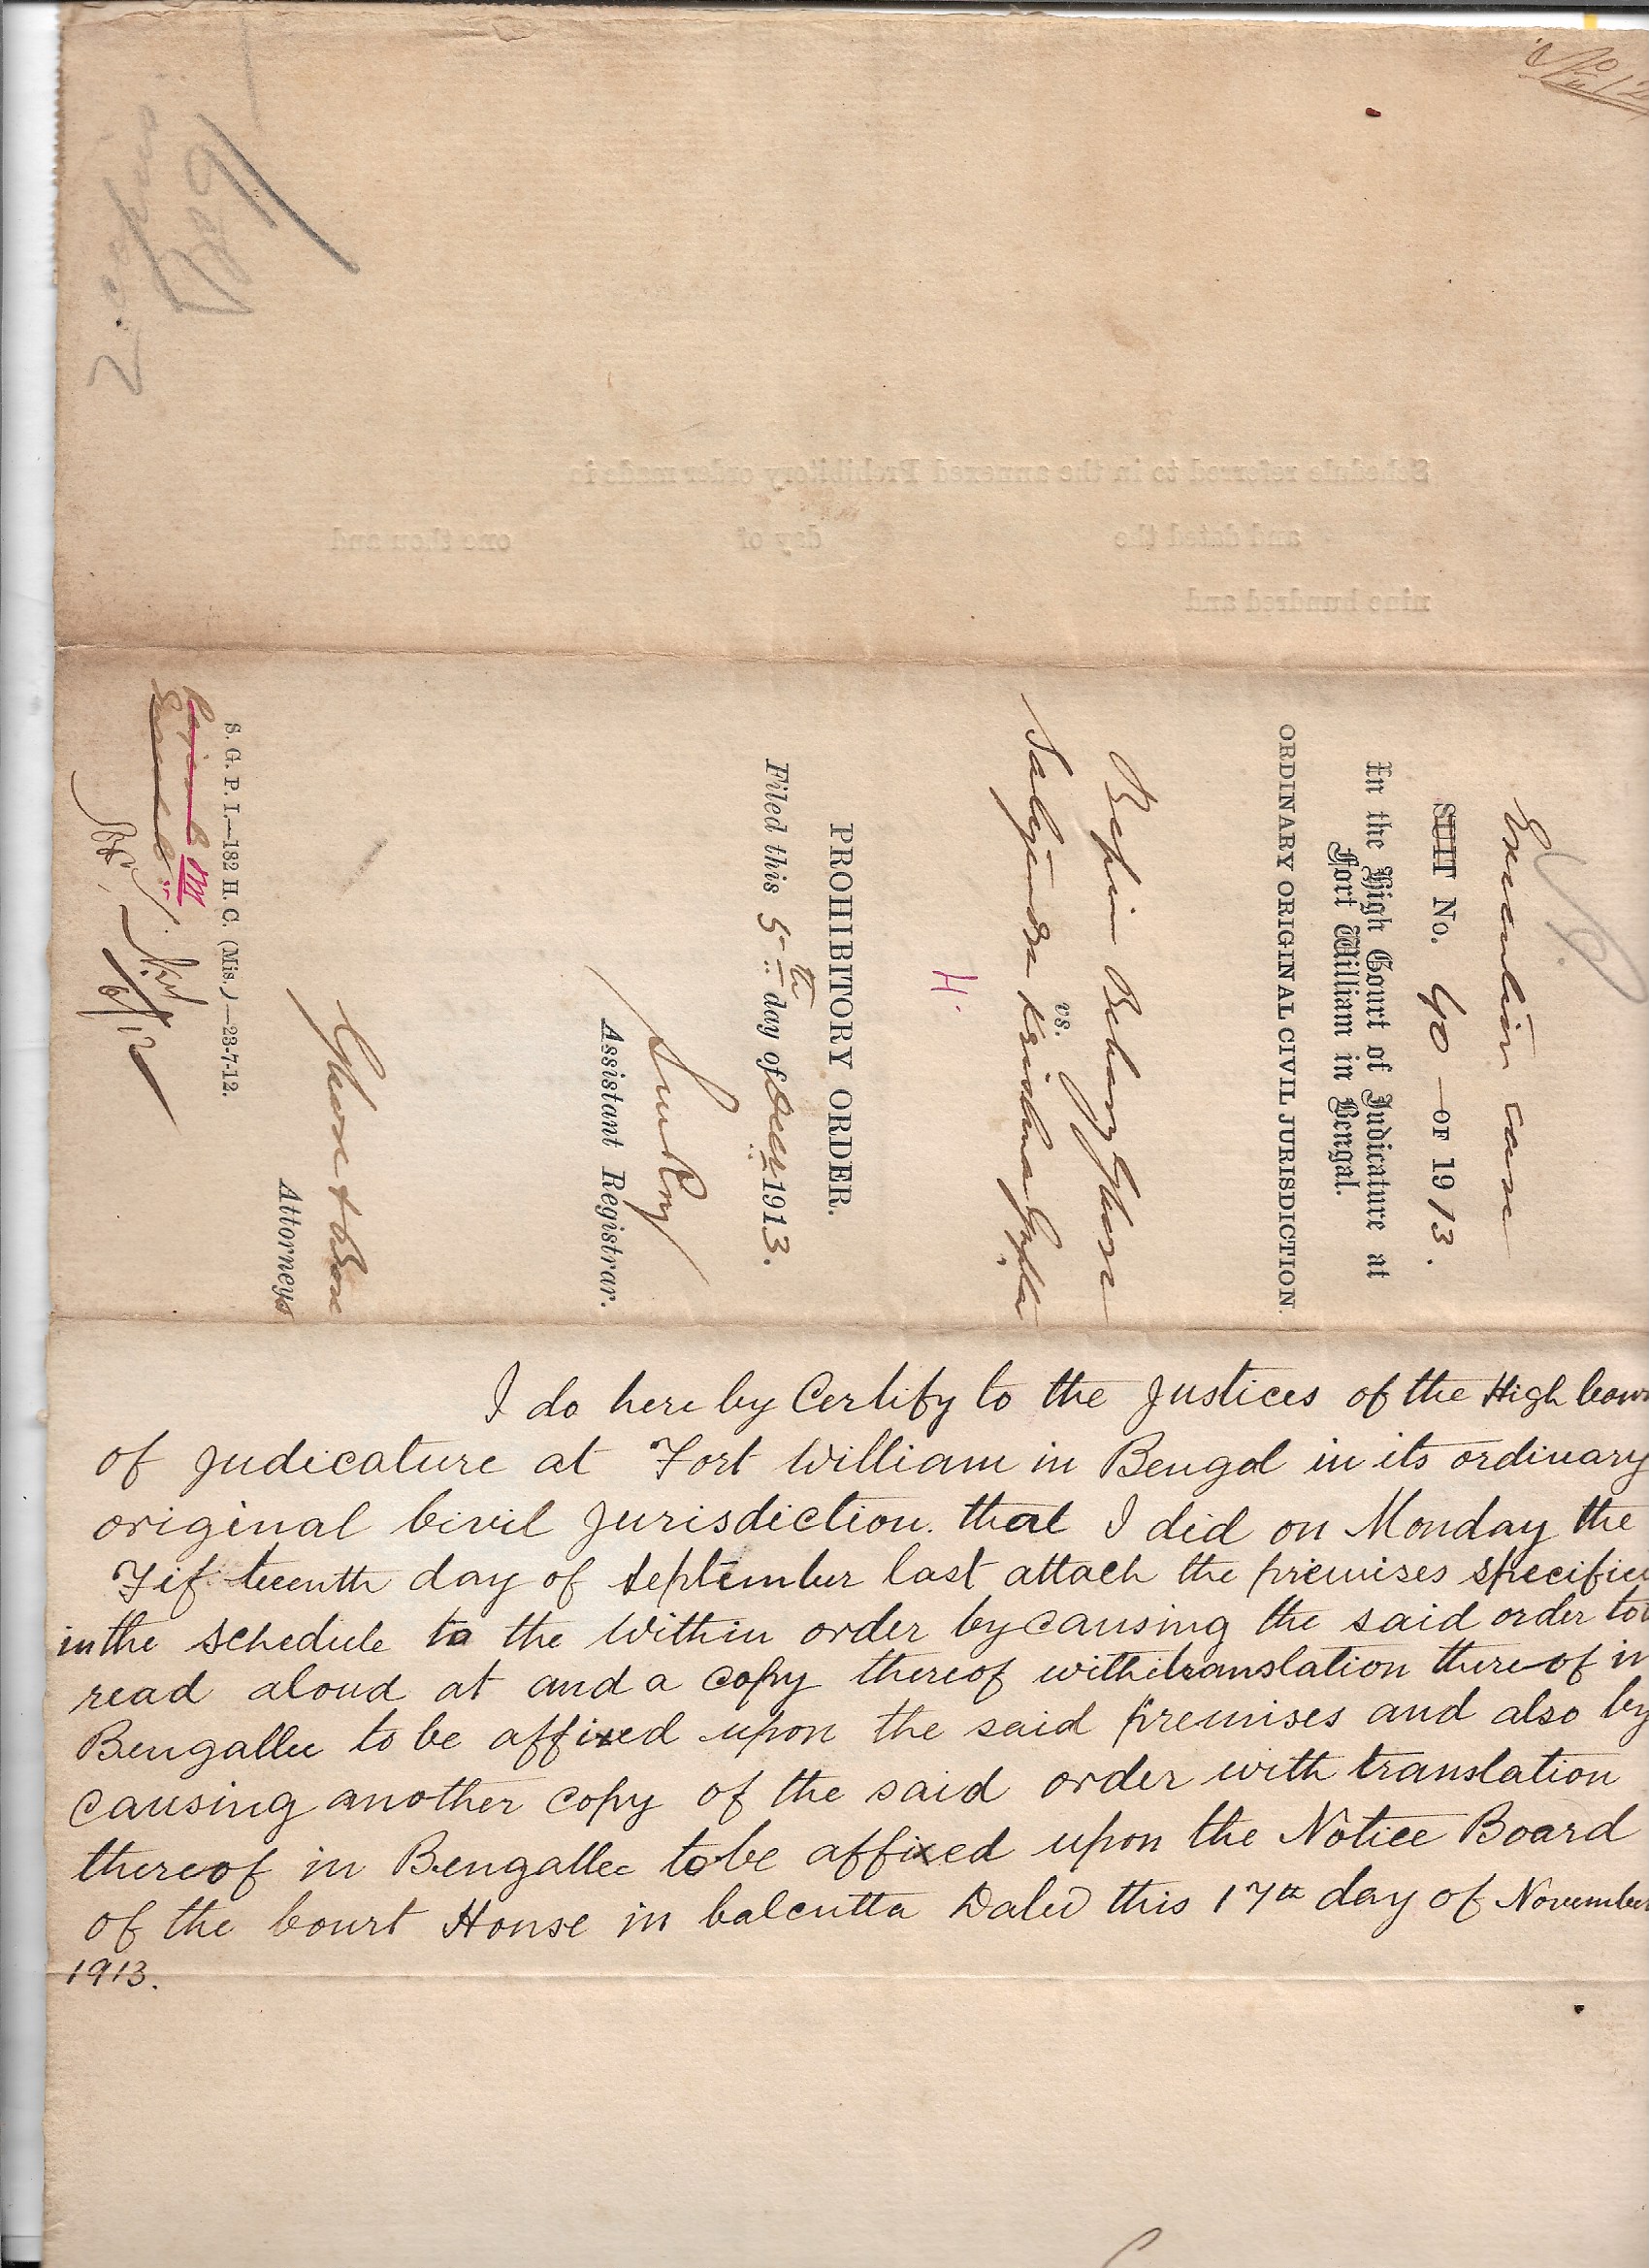 2. copies
Execution case
SUIT No. 40 — OF 1913.
In the High Court of Judicature at
Fort William in Bengal.
ORDINARY ORIGINAL CIVIL JURISDICTION.
Bepin Behary Ghose
vs.
Satyendra Krishna Gupta
H.
PROHIBITORY ORDER.
Filed this 5th day of Decr 1913.
Assistant Registrar.
Ghose & Bose
Attorneys
S. G. P. I.—182 H. C. (Mis.)—23-7-12.
6/12
Schedule referred to in the annexed Prohibitory order made in
and dated the day of one thousand
nine hundred and
I do here by Certify to the Justices of the High Cour
of Judicature at Fort William in Bengal in its ordinary
original Civil Jurisdiction. that I did on Monday the
Fifteenth day of September last attach the premises specifie
in the schedule to the within order by causing the said order to
read aloud at and a copy thereof with translation thereof in
Bengallee to be affixed upon the said premises and also by
causing another copy of the said order with translation
thereof in Bengallee to be affixed upon the Notice Board
of the Court House in Calcutta Dated this 17th day of November
1913.